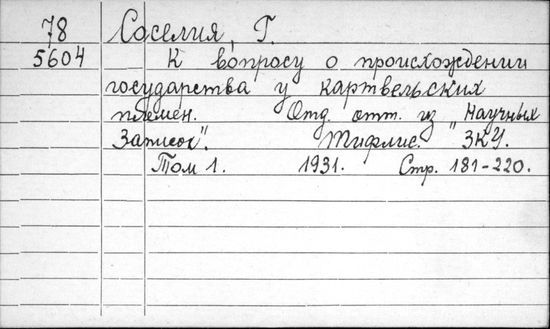 78 Соселия, Г.
5604 К вопросу о происхождении
государства у картвельских
племен. Отд. отт. из "Научных
Записок". Тифлис. ЗКУ.
Том 1. 1931. Стр. 181-220.